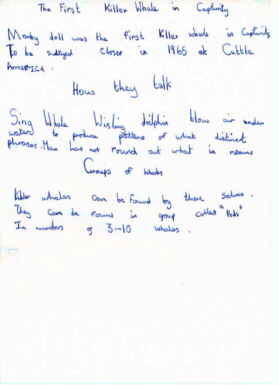 The First Killer Whale in Captivity
Moby doll was the First Killer whale in Captivity
To be studyed closer in 1965 at
America.
How they talk
Sing Whale dolphin blow air under
water to produce patterns of what distinct
phrases. Man has not found out what it means
Groups of whales
Killer whales can be found by there
They can be found in group called "Pods"
In numbers of 3-10 whales.